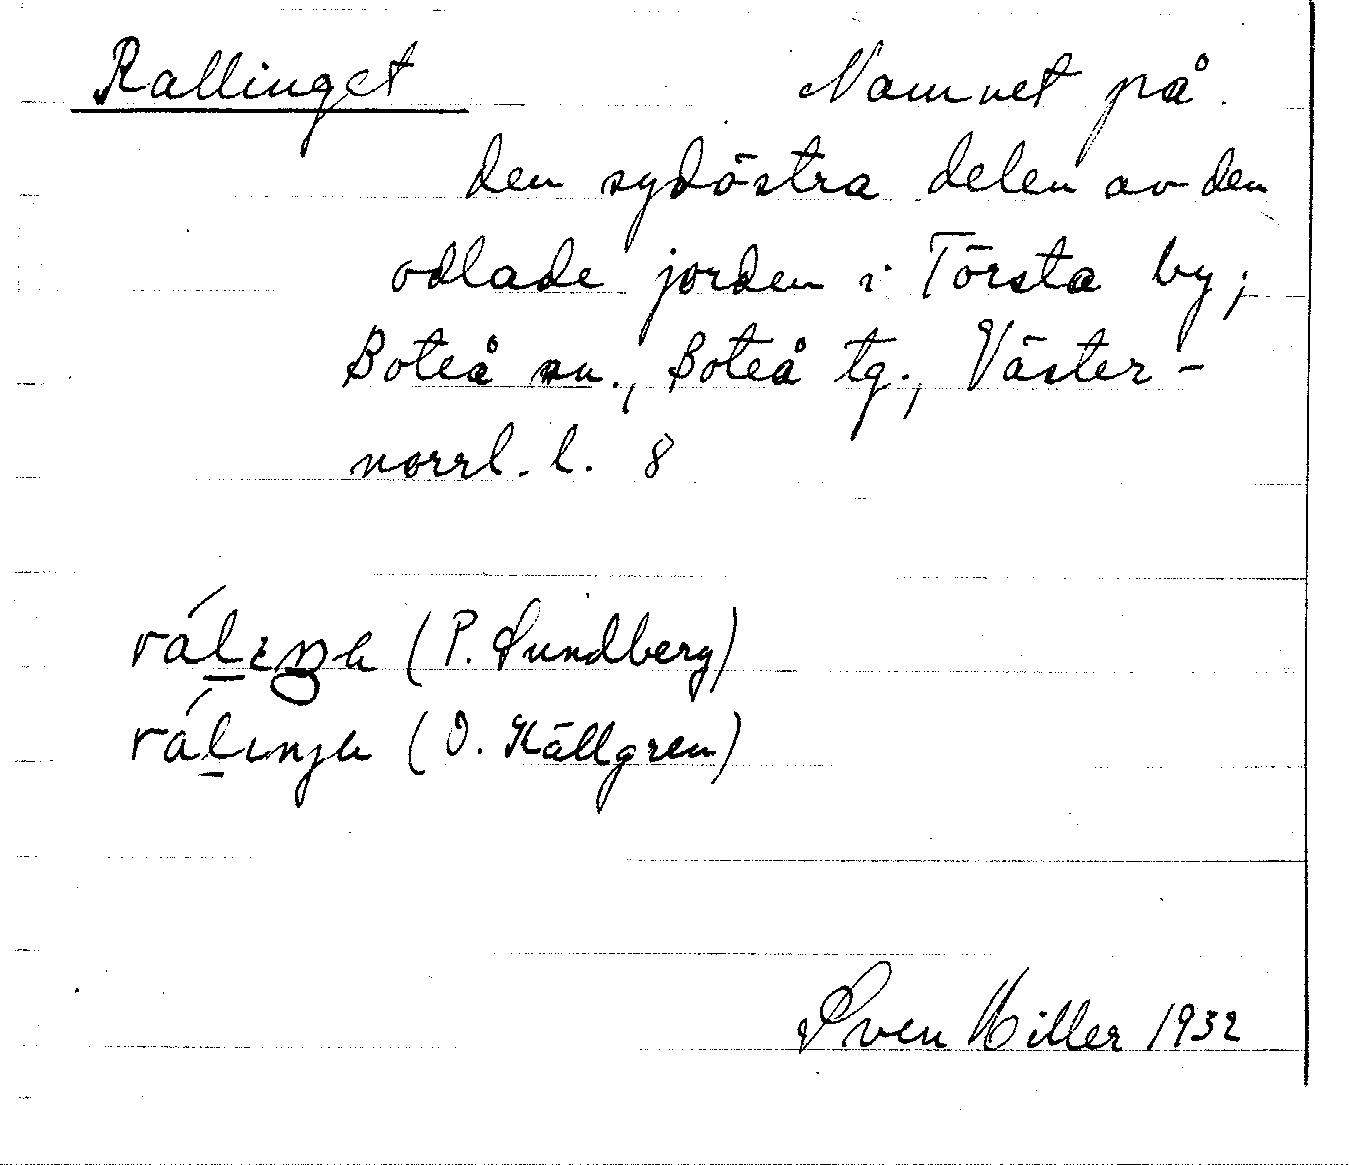 Rallinget Namnet på
den sydöstra delen av den
odlade jorden i Törsta by;
Boteå sn., Boteå tg., Väster-
norrl. l. 8
(P. Sundberg)
(O. Källgren)
Sven Hiller 1932